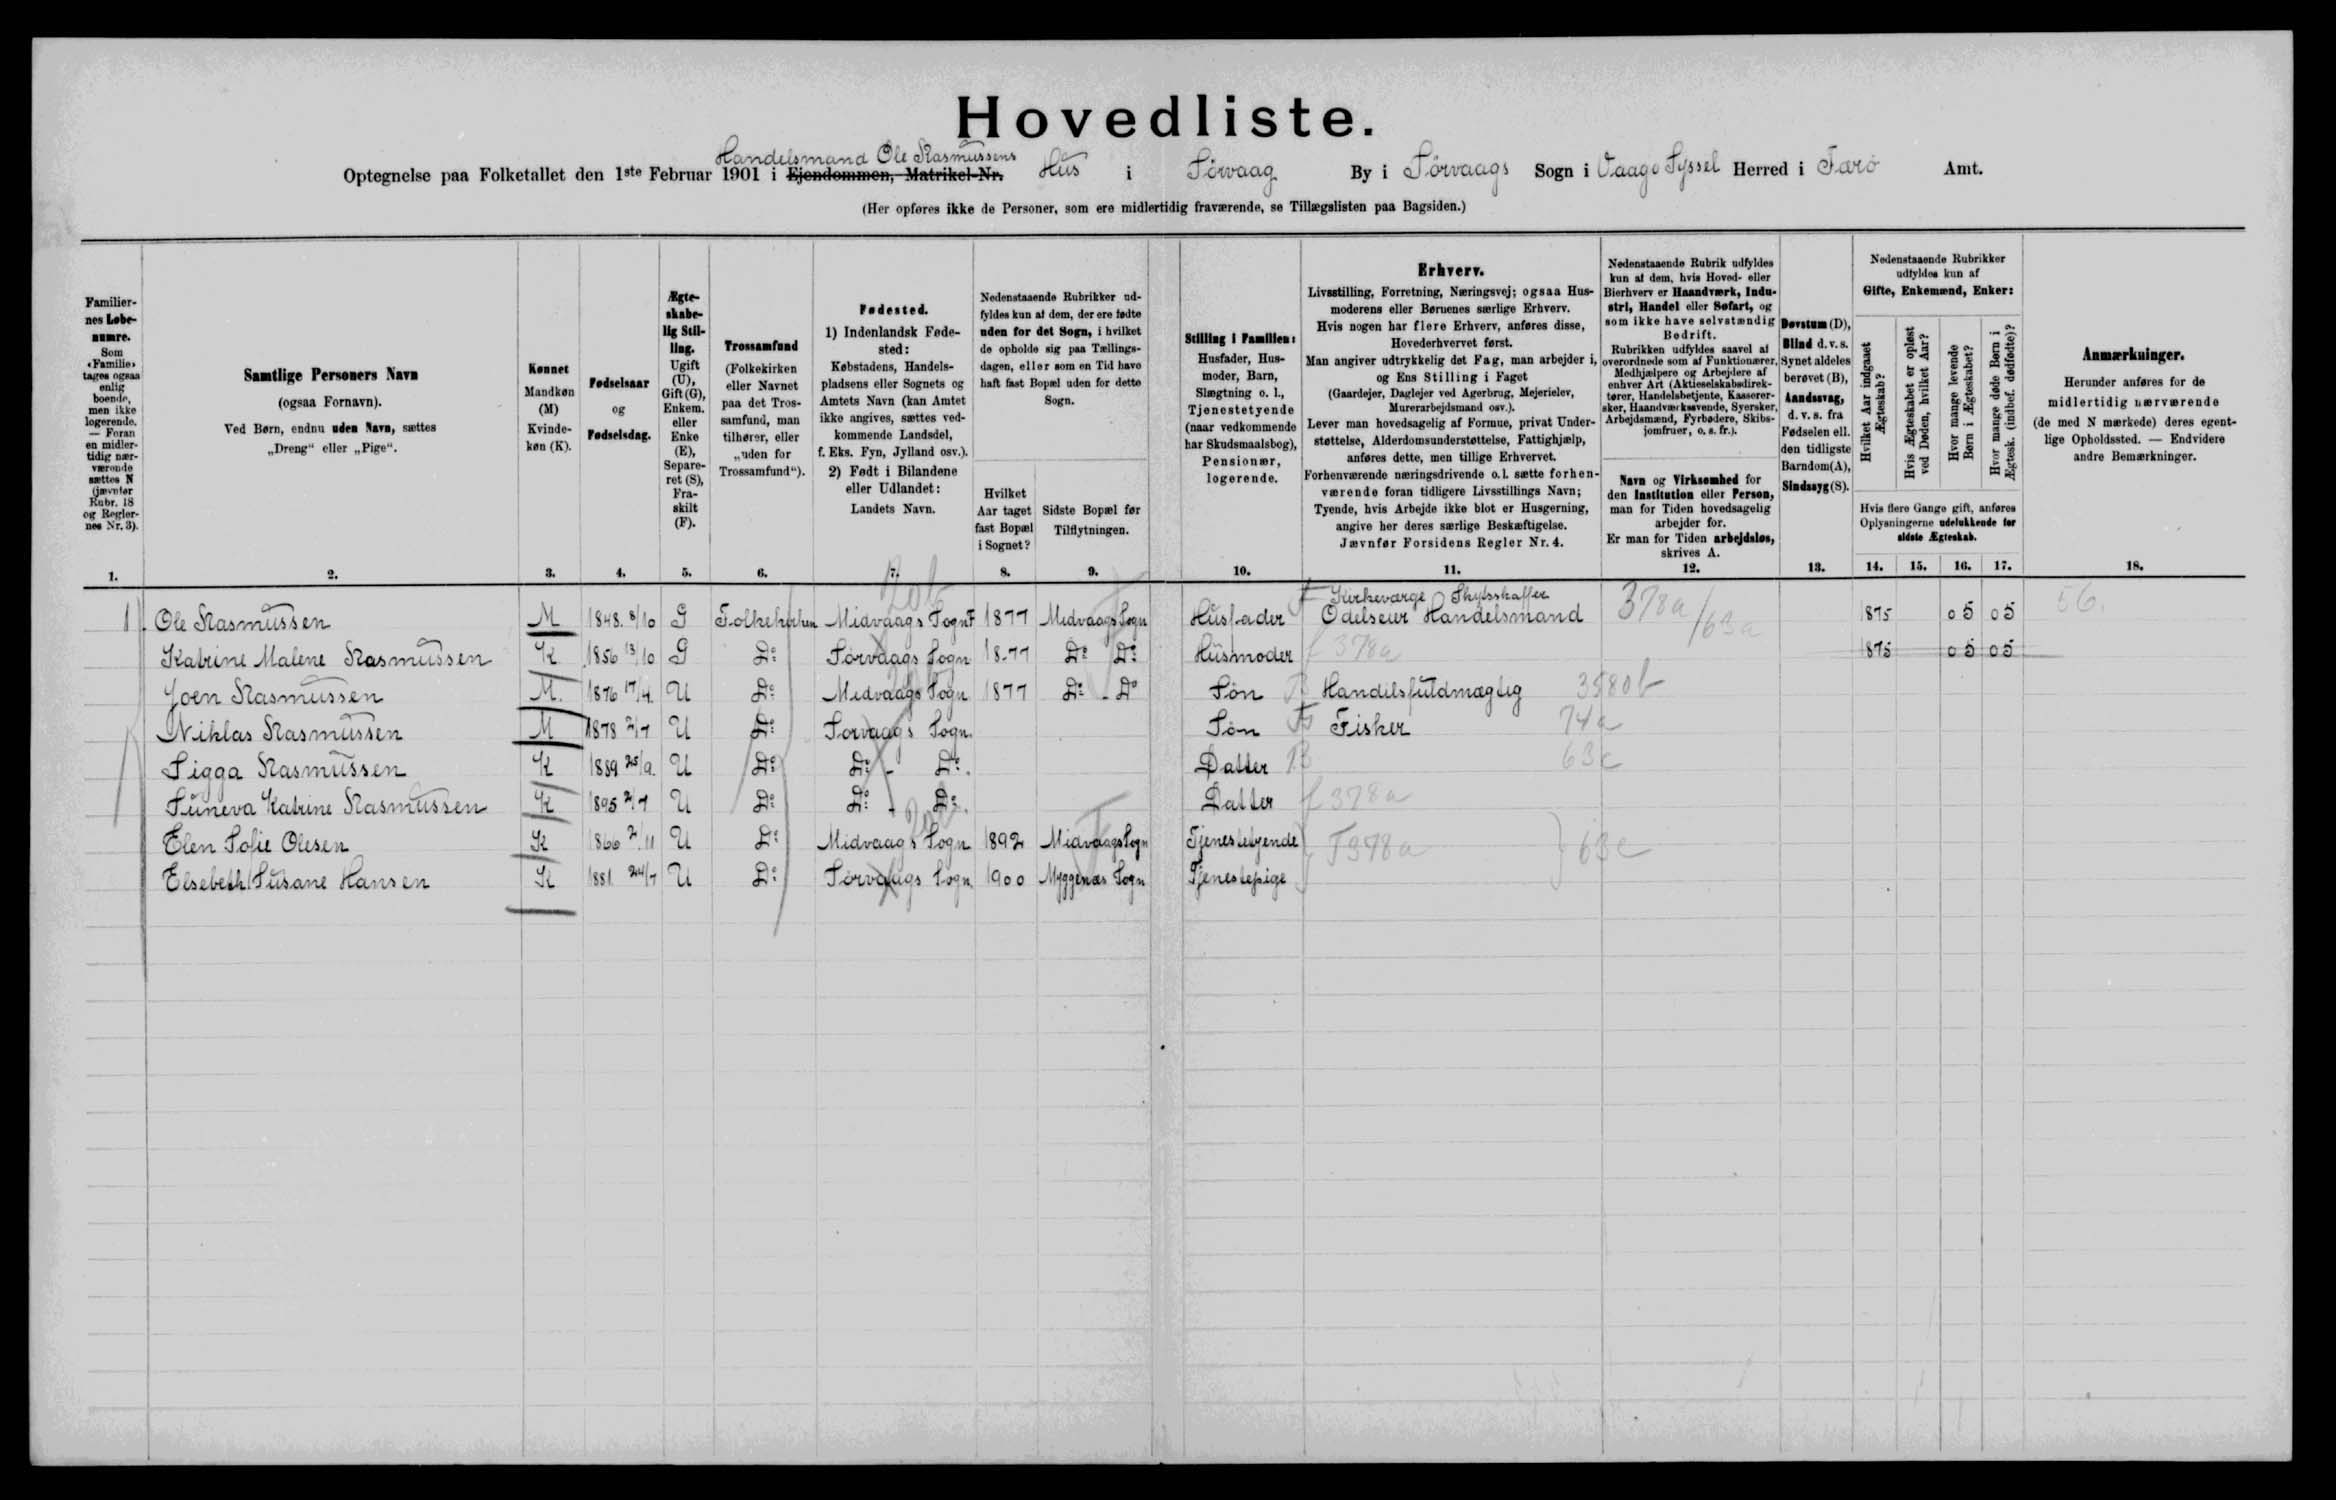 Hovedliste.
Handelsmand Ole Rasmussens
Optegnelse paa Folketallet den 1ste Februar 1901 i Ejendommen, Matrikel-Nr. Hus i Sörvaag By i Sörvaags Sogn i Vaagø Syssel Herred i Færö Amt.
(Her opføres ikke de Personer, som ere midlertidig fraværende, se Tillægslisten paa Bagsiden.)
Familiernes Løbenumre.
Som «Familie» tages ogsaa enlig boende, men ikke logerende. — Foran en midlertidig nærværende sættes N (jævnfør Rubr. 18 og Reglernes Nr. 3).
1.
Samtlige Personers Navn
(ogsaa Fornavn).
Ved Børn, endnu uden Navn, sættes
„Dreng“ eller „Pige“.
2.
Kønnet
Mandkøn (M)
Kvindekøn (K).
3.
Fødselsaar
og
Fødselsdag.
4.
Ægteskabelig Stilling.
Ugift (U), Gift (G), Enkem. eller Enke (E), Separeret (S), Fraskilt (F).
5.
Trossamfund
(Folkekirken eller Navnet paa det Trossamfund, man tilhører, eller „uden for Trossamfund“).
6.
Fødested.
1) Indenlandsk Fødested:
Købstadens, Handelspladsens eller Sognets og Amtets Navn (kan Amtet ikke angives, sættes vedkommende Landsdel, f. Eks. Fyn, Jylland osv.).
2) Født i Bilandene eller Udlandet:
Landets Navn.
7.
Nedenstaaende Rubrikker udfyldes kun af dem, der ere fødte uden for det Sogn, i hvilket de opholde sig paa Tællingsdagen, eller som en Tid have haft fast Bopæl uden for dette Sogn.
Hvilket Aar taget fast Bopæl i Sognet?
8.
Sidste Bopæl før Tilflytningen.
9.
Stilling i Familien:
Husfader, Husmoder, Barn, Slægtning o. l., Tjenestetyende (naar vedkommende har Skudsmaalsbog), Pensionær, logerende.
10.
Erhverv.
Livsstilling, Forretning, Næringsvej; ogsaa Husmoderens eller Børnenes særlige Erhverv.
Hvis nogen har flere Erhverv, anføres disse, Hovederhvervet først.
Man angiver udtrykkelig det Fag, man arbejder i, og Ens Stilling i Faget
(Gaardejer, Daglejer ved Agerbrug, Mejerielev, Murerarbejdsmand osv.).
Lever man hovedsagelig af Formue, privat Understøttelse, Alderdomsunderstøttelse, Fattighjælp, anføres dette, men tillige Erhvervet.
Forhenværende næringsdrivende o. l. sætte forhenværende foran tidligere Livsstillings Navn;
Tyende, hvis Arbejde ikke blot er Husgerning, angive her deres særlige Beskæftigelse.
Jævnfør Forsidens Regler Nr. 4.
11.
Nedenstaaende Rubrik udfyldes kun af dem, hvis Hoved- eller Bierhverv er Haandværk, Industri, Handel eller Søfart, og som ikke have selvstændig Bedrift.
Rubrikken udfyldes saavel af overordnede som af Funktionærer, Medhjælpere og Arbejdere af enhver Art (Aktieselskabsdirektører, Handelsbetjente, Kasserersker, Haandværkssvende, Syersker, Arbejdsmænd, Fyrbødere, Skibsjomfruer, o. s. fr.).
Navn og Virksomhed for den Institution eller Person, man for Tiden hovedsagelig arbejder for.
Er man for Tiden arbejdsløs, skrives A.
12.
Døvstum (D), Blind d. v. s. Synet aldeles berøvet (B), Aandssvag, d. v. s. fra Fødselen ell. den tidligste Barndom (A), Sindssyg (S).
13.
Nedenstaaende Rubrikker udfyldes kun af Gifte, Enkemænd, Enker:
Hvilket Aar indgaaet Ægteskab?
Hvis Ægteskabet er opløst ved Døden, hvilket Aar?
Hvor mange levende Børn i Ægteskabet?
Hvor mange døde Børn i Ægtesk. (indbef. dødfødte)?
Hvis flere Gange gift, anføres Oplysningerne udelukkende for sidste Ægteskab.
14. 15. 16. 17.
Anmærkninger.
Herunder anføres for de midlertidig nærværende (de med N mærkede) deres egentlige Opholdssted. — Endvidere andre Bemærkninger.
18.
Kirkeværge Skydsskaffer
1. Ole Rasmussen M 1848. 8/10 G Folkekirken Midvaags Sogn 1877 Midvaags Sogn Husfader Odelseier Handelsmand 378a/63a 1875 05 05 56.
Katrine Malene Rasmussen K 1856 13/10 G Do Sörvaags Sogn 1877 Do Do Husmoder f 378a 1875 05 05
Joen Rasmussen M. 1876 17/4. U Do Midvaags Sogn 1877 Do - Do Sön Handelsfuldmægtig 3580b
Niklas Rasmussen M 1878 2/7 U Do Sorvaags Sogn. Sön Fisker 74a
Sigga Rasmussen K 1889 25/9. U Do Do - Do. Datter B 63c
Suneva Katrine Rasmussen K 1895 2/7 U Do Do - Do. Datter f 378a
Elen Sofie Olesen K 1866 2/11 U Do Midvaags Sogn 1892 Midvaags Sogn Tjenestetyende T378a 63c
Elsebeth Susane Hansen K 1881 24/7 U Do Sörvaags Sogn. 1900 Myggenæs Sogn Tjenestepige